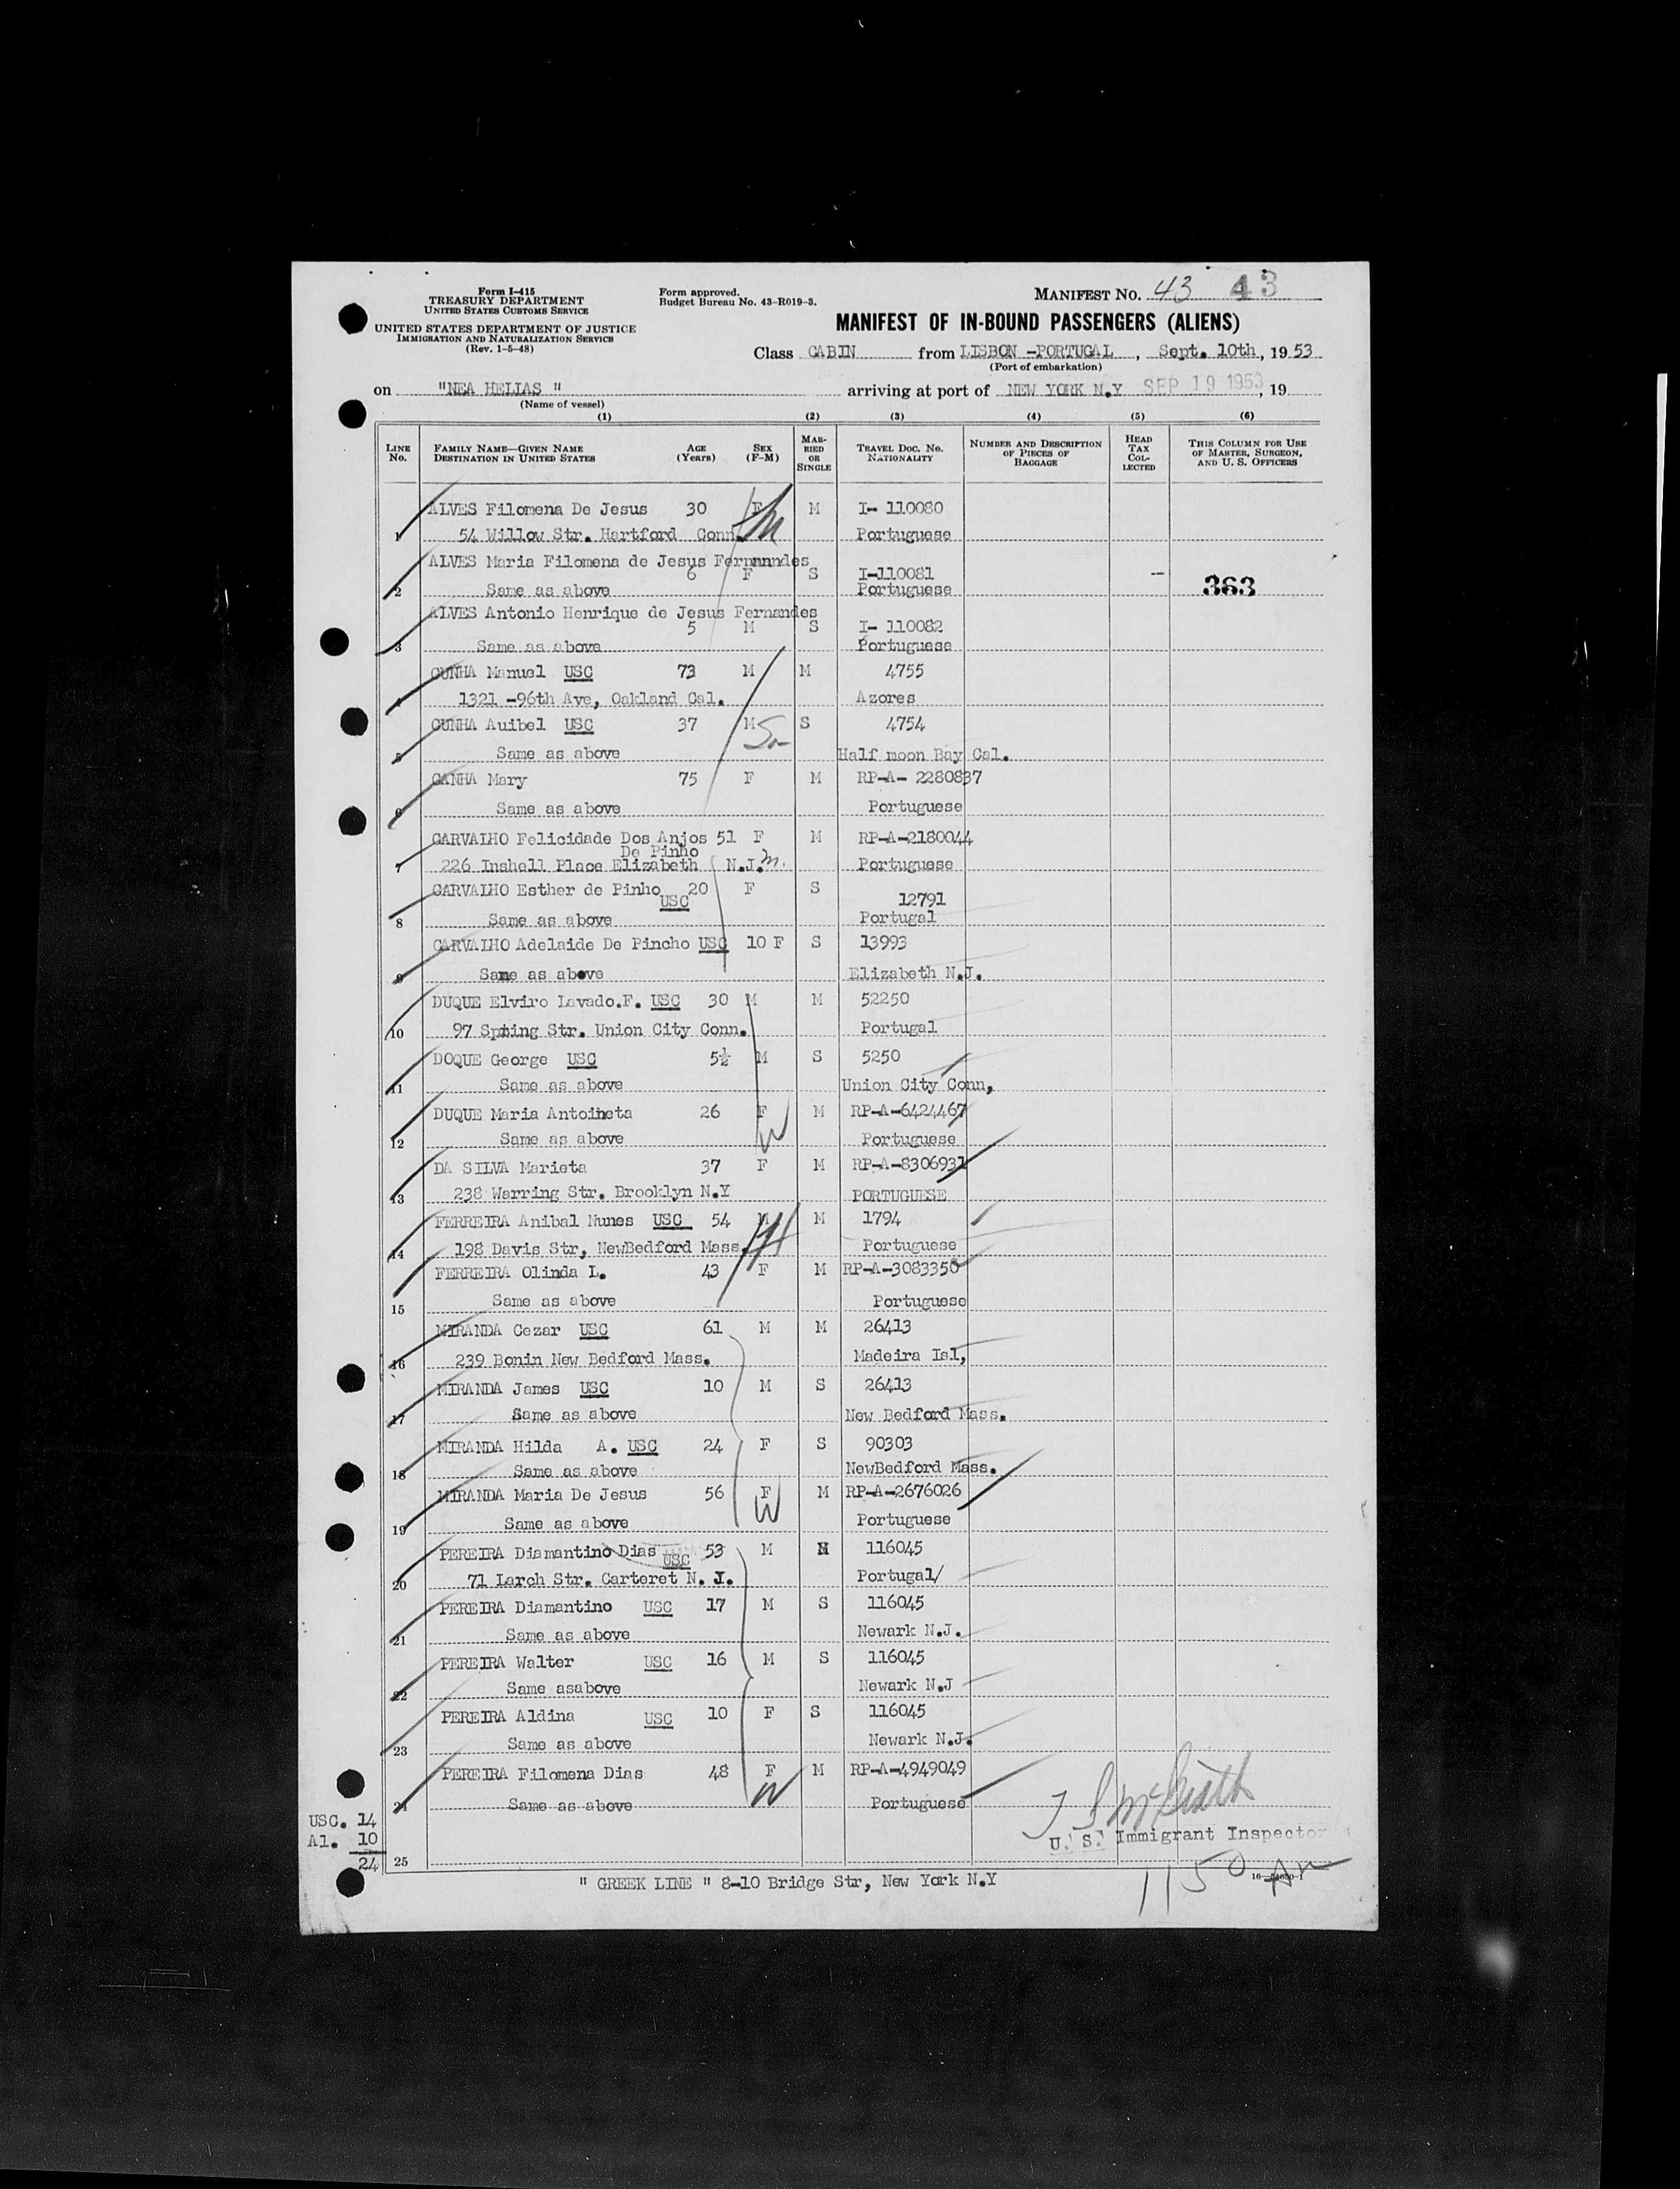 Form I-415
TREASURY DEPARTMENT
UNITED STATES CUSTOMS SERVICE
UNITED STATES DEPARTMENT OF JUSTICE
IMMIGRATION AND NATURALIZATION SERVICE
(Rev. 1-5-48)
Form approved.
Budget Bureau No. 43-R019-3.
MANIFEST NO. 43 43
MANIFEST OF IN-BOUND PASSENGERS (ALIENS)
Class CABIN from LISBON -PORTUGAL , Sept. 10th, 19 53
(Port of embarkation)
on "NEA HELIAS " arriving at port of NEW YORK N.Y SEP 19 1953, 19
(Name of vessel)
(1) (2) (3) (4) (5) (6)
LINE No. FAMILY NAME—GIVEN NAME DESTINATION IN UNITED STATES AGE (Years) SEX (F-M) MARRIED OR SINGLE TRAVEL DOC. NO. NATIONALITY NUMBER AND DESCRIPTION OF PIECES OF BAGGAGE HEAD TAX COLLECTED THIS COLUMN FOR USE OF MASTER, SURGEON, AND U. S. OFFICERS
ALVES Filomena De Jesus 30 F M I- 110080
1 54 Willow Str. Hartford Conn. Portuguese
ALVES Maria Filomena de Jesus Fernandes
6 F S I-110081
2 Same as above Portuguese — 363
ALVES Antonio Henrique de Jesus Fernandes
5 M S I- 110082
3 Same as above Portuguese
CUNHA Manuel USC 73 M M 4755
4 1321 -96th Ave, Oakland Cal. Azores
CUNHA Auibel USC 37 M S 4754
5 Same as above Half moon Bay Cal.
CANHA Mary 75 F M RP-A- 2280837
6 Same as above Portuguese
CARVALHO Felicidade Dos Anjos 51 F M RP-A-2180044
De Pinho
7 226 Inshell Place Elizabeth N.J. Portuguese
CARVALHO Esther de Pinho 20 F S
USC 12791
8 Same as above Portugal
CARVALHO Adelaide De Pincho USC 10 F S 13993
9 Same as above Elizabeth N.J.
DUQUE Elviro Lavado.F. USC 30 M M 52250
10 97 Spring Str. Union City Conn. Portugal
DOQUE George USC 5½ M S 5250
11 Same as above Union City Conn,
DUQUE Maria Antoineta 26 F M RP-A-6424467
12 Same as above Portuguese
DA SILVA Marieta 37 F M RP-A-8306931
13 238 Warring Str. Brooklyn N.Y PORTUGUESE
FERREIRA Anibal Nunes USC 54 M M 1794
14 198 Davis Str, NewBedford Mass. Portuguese
FERREIRA Olinda L. 43 F M RP-A-3083350
15 Same as above Portuguese
MIRANDA Cezar USC 61 M M 26413
16 239 Bonin New Bedford Mass. Madeira Isl,
MIRANDA James USC 10 M S 26413
17 Same as above New Bedford Mass.
MIRANDA Hilda A. USC 24 F S 90303
18 Same as above NewBedford Mass.
MIRANDA Maria De Jesus 56 F M RP-A-2676026
19 Same as above Portuguese
PEREIRA Diamantino Dias USC 53 M M 116045
20 71 Larch Str. Carteret N. J. Portugal/
PEREIRA Diamantino USC 17 M S 116045
21 Same as above Newark N.J.
PEREIRA Walter USC 16 M S 116045
22 Same asabove Newark N.J
PEREIRA Aldina USC 10 F S 116045
23 Same as above Newark N.J.
PEREIRA Filomena Dias 48 F M RP-A-4949049
24 Same as above Portuguese
USC. 14
Al. 10
24
U. S. Immigrant Inspector
25
" GREEK LINE " 8-10 Bridge Str, New York N.Y
1150 Am